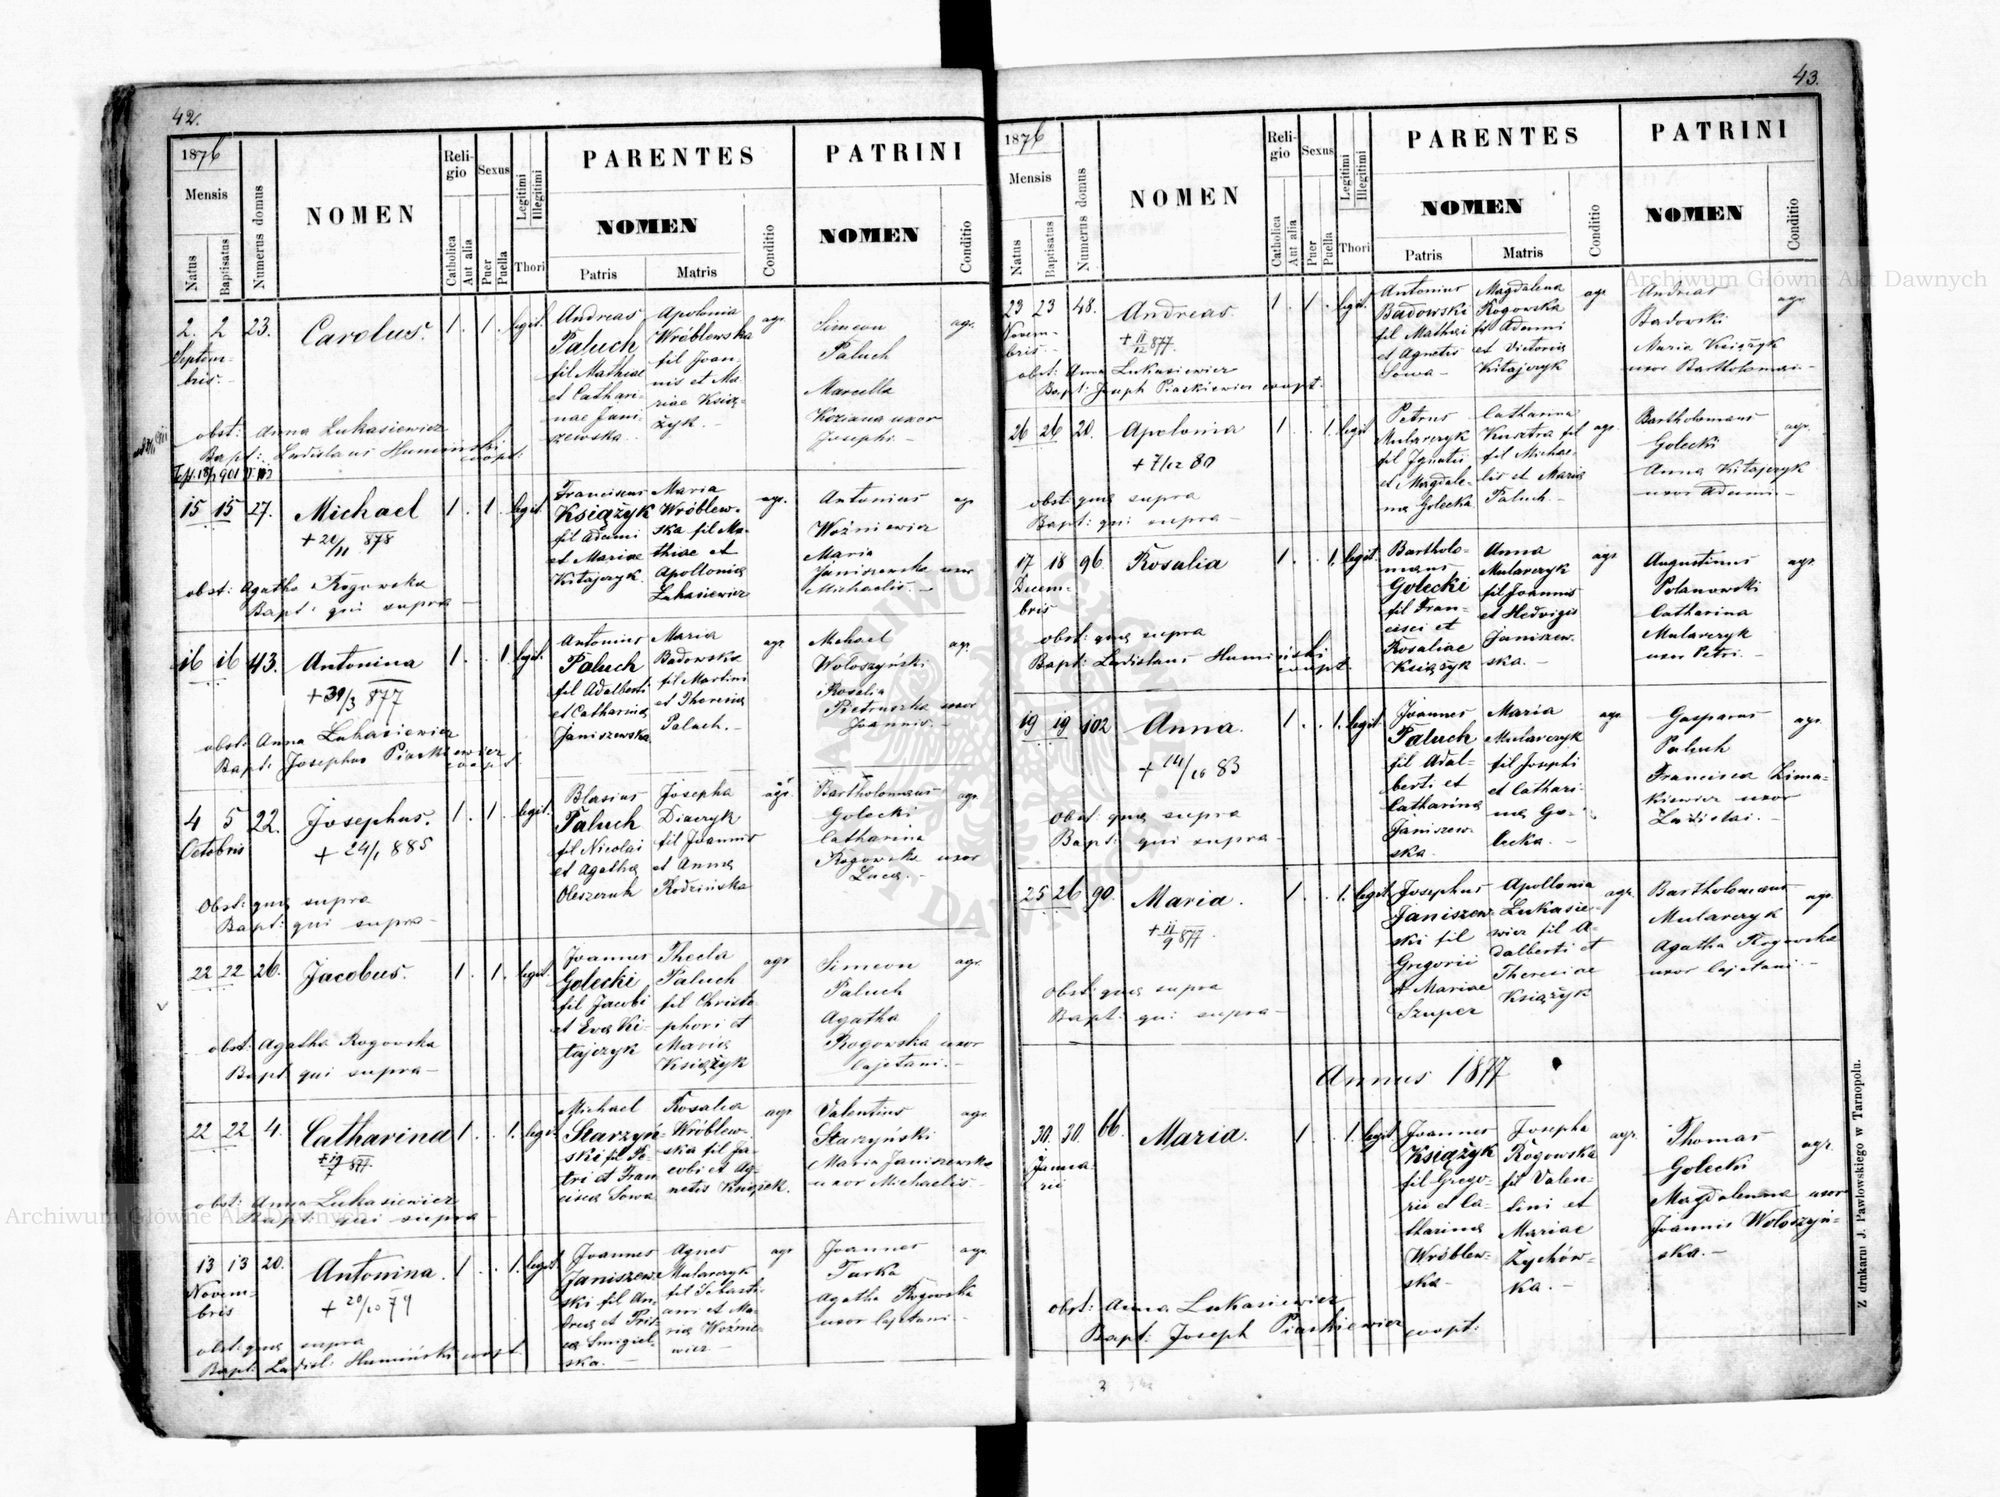 42.
1876
Mensis
Natus
Baptisatus
Numerus domus
NOMEN
Religio
Catholica
Aut alia
Sexus
Puer
Puella
Legitimi
Illegitimi
Thori
PARENTES
NOMEN
Patris
Matris
Conditio
PATRINI
NOMEN
Conditio
2. 2 23. Carolus. 1. 1. legit.
Septem-
bris.
Andreas
Paluch
fil Mathiae
et Cathari-
nae Jani-
szewska.
Apolonia
Wróblewska
fil Joan-
nis et Ma-
riae Książ-
żyk.
agr.
Simeon
Paluch
Marcella
Koziana uxor
Josephi.
agr.
obst: Anna Lukasiewicz
Bapt: Ladislaus Humiński
coopt:
15 15 27. Michael 1. 1. legit.
+ 20/11 878
Franciscus
Książyk
fil Adami
et Mariae
Kitajczyk.
Maria
Wróblew-
ska fil Ma-
thiae et
Apollonia
Lukasiewicz
agr.
Antonius
Woźniewicz
Maria
Janiszewska uxor
Michaelis.
agr
obst: Agatha Rogowska
Bapt: qui supra
16 16 43. Antonina 1. 1. legit.
+ 30/3 877
Antonius
Paluch
fil Adalberti
et Catharina
Janiszewska
Maria
Badowska
fil Martini
et Theresia
Paluch.
agr
Michael
Woloszyński
Rosalia
Pietruszka uxor
Joannis.
agr.
obst: Anna Lukasiewicz
Bapt: Josephus Piaskiewicz
coopt:
4 5 22. Josephus. 1. 1. legit.
Octobris
+ 24/1 885
Blasius
Paluch
fil Nicolai
et Agatha
Oleszczuk
Josepha
Diaczyk
fil Joannis
et Anna
Rodzińska
agr.
Bartholomaus
Golecki
Catharina
Rogowska uxor
Luca.
agr.
Obst: qua supra
Bapt: qui supra
22 22 26. Jacobus. 1. 1. legit.
Joannes
Golecki
fil Jacobi
et Eva Ki-
tajczyk
Thecla
Paluch
fil Christo-
phori et
Maria
Książyk
agr
Simeon
Paluch
Agatha
Rogowska uxor
Cajetani.
agr.
obst: Agatha Rogowska
Bapt qui supra
22 22 4. Catharina 1. 1. legit
+ 19/7 877.
Michael
Starzyń-
ski fil Pe-
tri et Fran
cisca Sowa
Rosalia
Wróblew-
ska fil Ja-
cobi et Ag-
netis Książek.
agr
Valentius
Starzyński
Maria Janiszewska
uxor Michaelis.
agr
obst: Anna Lukasiewicz
Bapt: qui supra
13 13 20. Antonina. 1. 1. legit
Novem-
bris
+ 20/10 79
Joannes
Janiszew-
ski fil An-
drea et
Smigiel-
ska.
Agnes
Mularczyk
fil Sebasti-
ani et Ma-
ria Woźnie-
wicz
agr
Joannes
Turka
Agatha Rogowska
uxor Cajetani.
agr.
obst: qua supra
Bapt: Ladisl: Humiński coopt:
43.
1876
Mensis
Natus
Baptisatus
Numerus domus
NOMEN
Religio
Catholica
Aut alia
Sexus
Puer
Puella
Legitimi
Illegitimi
Thori
PARENTES
NOMEN
Patris
Matris
Conditio
PATRINI
NOMEN
Conditio
23 23 48. Andreas. 1. 1. legit
Novem-
bris.
+ 11/12 877.
Antonius
Badowski
fil Mathei
et Agnetis
Sowa
Magdalena
Rogowska
fil Adami
et Victoria
Kitajczyk
agr
Andreas
Badowski
Maria Książyk
uxor Bartholomai.
agr
obst: Anna Lukasiewicz
Bapt: Joseph Piaskiewicz coopt:
26 26 20. Apolonia 1. 1. legit
+ 7/12 80
Petrus
Mularczyk
fil Ignatii
et Magdale-
na Golecka
Catharina
Kusztra fil
fil Michae-
lis et Maria
Paluch
agr.
Bartholomaus
Golecki
Anna Kitajczyk
uxor Adami.
agr.
obst: qua supra
Bapt: qui supra
17 18 96. Rosalia 1. 1. legit.
Decem-
bris
Bartholo-
maus
Golecki
fil Fran-
cisci et
Rosaliae
Książyk
Anna
Mularczyk
fil Joannis
et Hedvigis
Janiszew-
ska.
agr
Augustinus
Polanowski
Catharina
Mularczyk
uxor Petri.
agr.
obst: qua supra
Bapt: Ladislaus Humiński
coopt.
19 19 102 Anna. 1. 1. legit
+ 14/10 83
Joannes
Paluch
fil Adal-
berti et
Catharina
Janiszew-
ska.
Maria
Mularczyk
fil Josephi
et Cathari-
na Go-
lecka.
agr.
Gasparus
Paluch
Francisca Lima-
kiewicz uxor
Ladislai.
agr.
obst: qua supra
Bapt: qui supra
25 26 90. Maria. 1. 1. legit
+ 11/9 877.
Josephus
Janiszew-
ski fil
Gregorii
et Mariae
Szuper
Apollonia
Lukasie-
wicz fil A-
dalberti et
Theresiae
Książyk
agr.
Bartholomaus
Mularczyk
Agatha Rogowska
uxor Cajetani.
agr.
Obst: qua supra
Bapt: qui supra
Annus 1877
30. 30. 66. Maria. 1. 1. legit
Janua-
rii
Joannes
Książyk
fil Grego-
rii et Ca-
tharina
Wróblew-
ska
Josepha
Rogowska
fil Valen-
tini et
Mariae
Żychów-
ka.
agr.
Thomas
Golecki
Magdalena uxor
Joannis Woloszyń-
ska.
agr.
obst: Anna Lukasiewicz
Bapt: Joseph Piaskiewicz coopt:
Z drukarni J. Pawłowskiego w Tarnopolu.
Archiwum Główne Akt Dawnych
Archiwum Główne Akt Dawnych